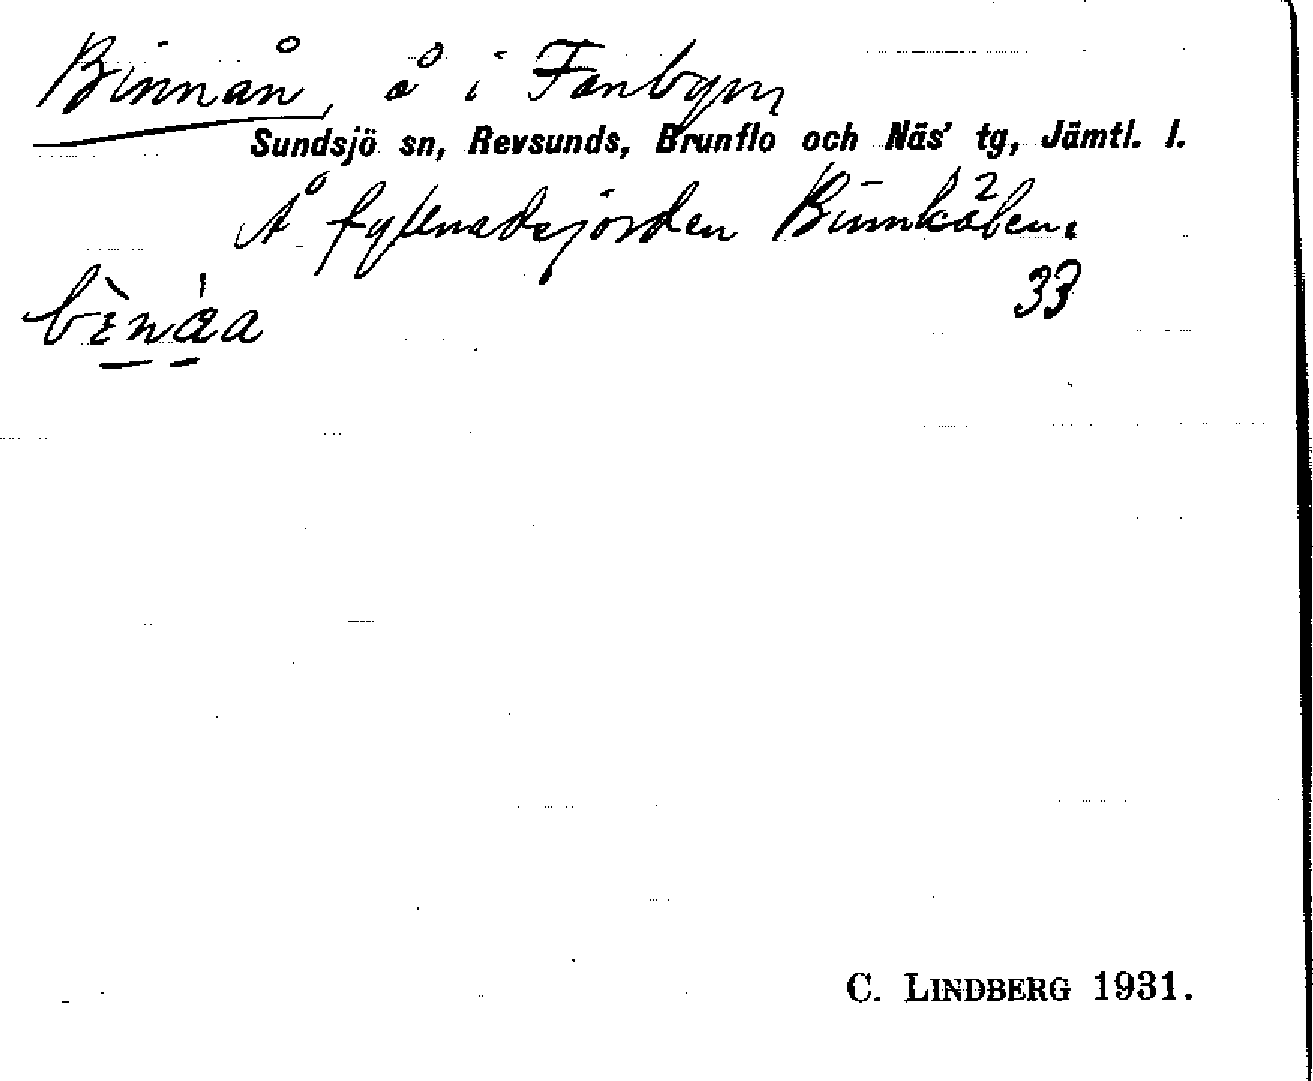 Binnån, å i Fanbyn
Sundsjö sn, Revsunds, Brunflo och Näs' tg, Jämtl. l.
Å fyllnadsjorden
33
C. LINDBERG 1931.